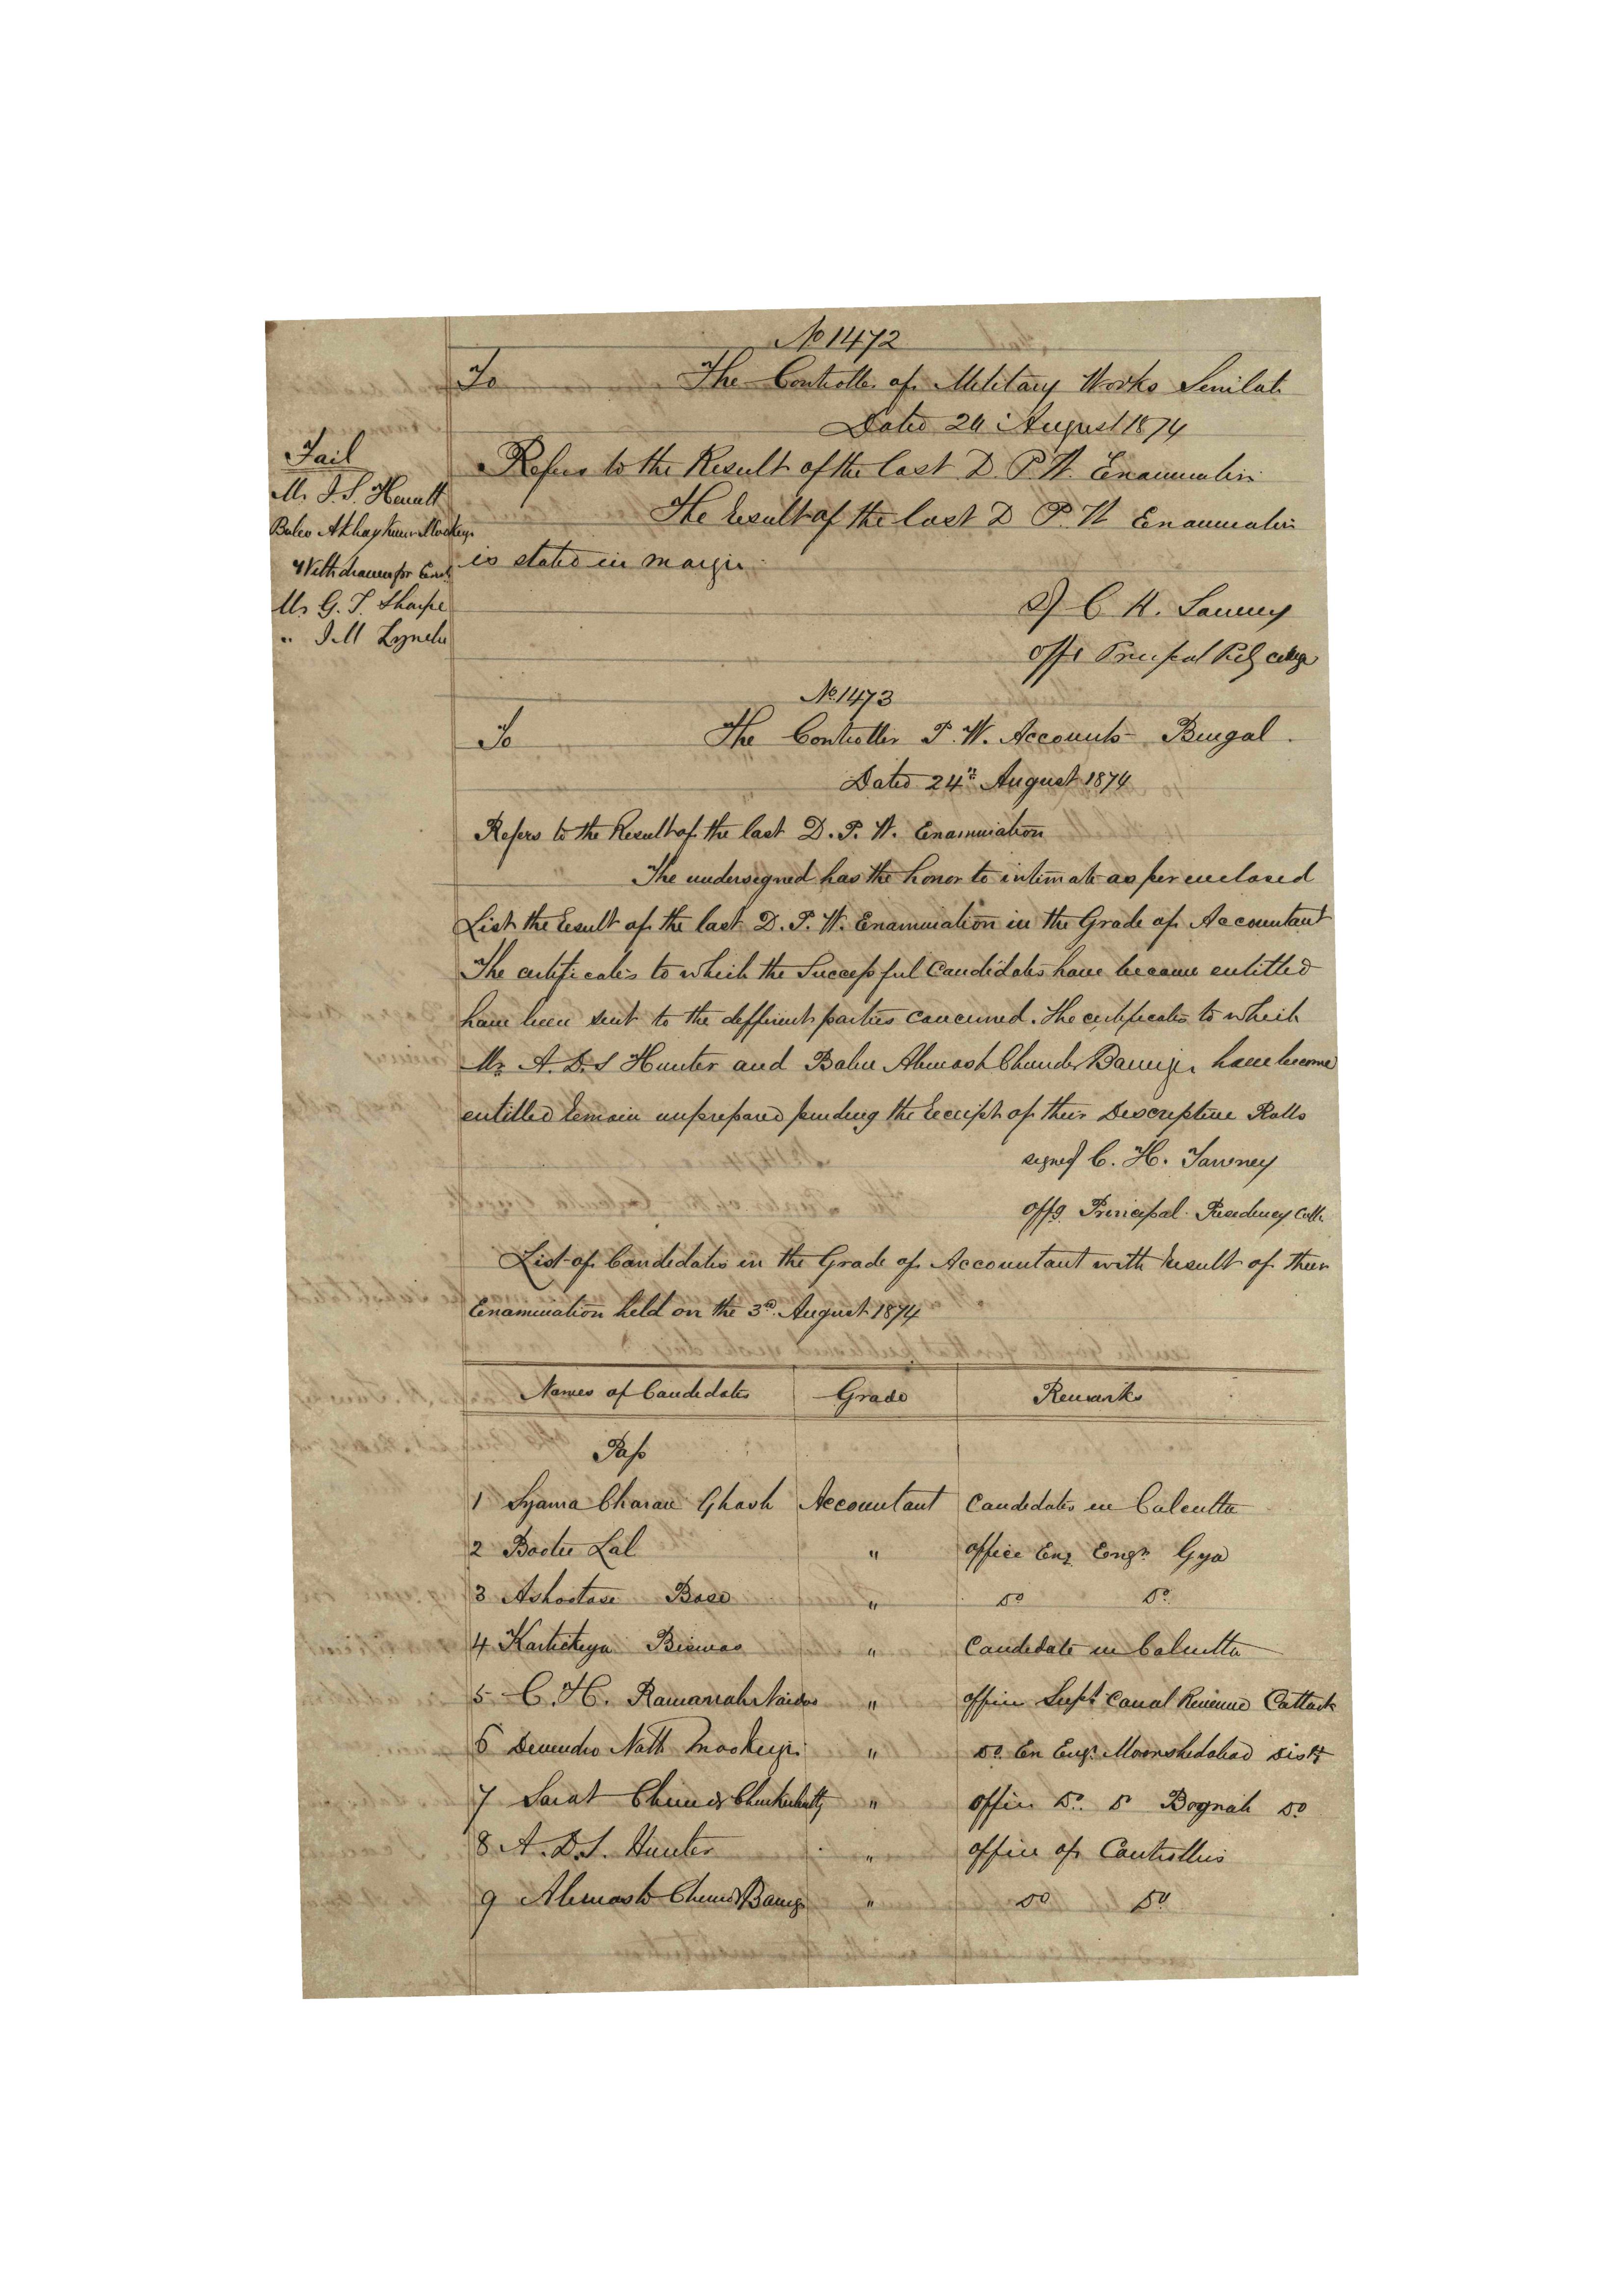 No 1472
To The Controller of Military Works Simlah
Dated 24 August 1874
Refers to the Result of the last D. P. W. Examination
The result of the last D P. W Examination
is stated in margin
Fail
Mr J. S. Hewett
Baboo Akhay Kumar Mookerji
Withdrawn for Exn.
Mr G. T. Sharpe
" J. M Lynch
Sd C H. Tawney
Offg Principal Presy college
No. 1473
To The Controller P. W. Accounts Bengal.
Dated 24th August 1874
Refers to the Result of the last D. P. W. Examination
The undersigned has the honor to intimate as per enclosed
List the result of the last D. P. W. Examination in the Grade of Accountant
The certificates to which the Successful Candidates have become entitled
have been sent to the different parties concerned. The certificates to which
Mr A. D. S Hunter and Babu Abinash Chunder Banerji have become
entitled remain unprepared pending the receipt of their Descriptive Rolls
signed C. H. Tawney
Offg. Principal Presidency Coll.
List of Candidates in the Grade of Accountant with result of their
Examination held on the 3d. August 1874
Names of Candidates Grade Remarks
Pass
1 Syama Charan Ghosh Accountant Candidates in Calcutta
2 Lal " office Exe. Engr. Gya
3 Ashootose Bose " Do Do
4 Kartickeya Biswas " Candidate in Calcutta
5 C. H. Ramanah Naidoo " office Supt Canal Revenue Cattack
6 Devendro Nath Mookerji " Do Ex Engr. Moorshedabad Distt
7 Sarat Chunder Chuckerbutty " Office Do. Do Bograh Do
8 A. D. S. Hunter " office of Controllers
9 Abinash Chunder Banerji " Do Do